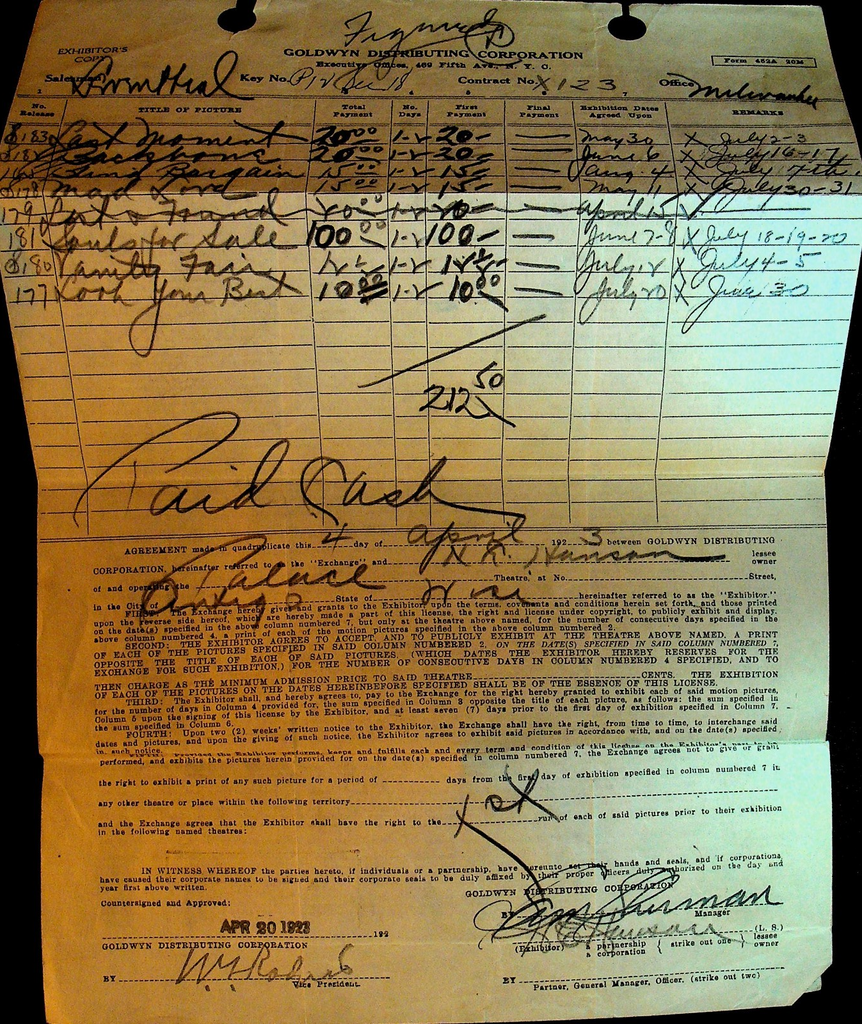 Figured
EXHIBITOR'S COPY
GOLDWYN DISTRIBUTING CORPORATION
Executive Offices, 469 Fifth Ave., N. Y. C.
Form 452A 20M
Salesman Rosenthal Key No. Contract No. X123 Office Milwaukee
No. Release TITLE OF PICTURE Total Payment No. Days First Payment Final Payment Exhibition Dates Agreed Upon REMARKS
183 Last Moment 20 00 1-2 20- — May 30 X July 2-3
182 Backbone 20 00 1-2 20- — June 6 X July 16-17
Gimme Bargain 15 00 1-2 15- — Aug 4 X July
178 Mad Love 15 00 1-2 15- — May 11 X July 30-31
179 Lost & Found 20 00 1-2 20- — April 15 X
181 Souls for Sale 100 1-2 100- — June 7-8 X July 18-19-20
180 Vanity Fair 1-2 — July 12 X July 4-5
177 Look Your Best 10 00 1-2 10 00 — July 20 X June 30
212 50
Paid Cash
AGREEMENT made in quadruplicate this 4 day of April 192 3 between GOLDWYN DISTRIBUTING
CORPORATION, hereinafter referred to as the "Exchange" and Hanson lessee owner
of and operating the Palace Theatre, at No. Street,
in the City of Antigo State of Wisc hereinafter referred to as the "Exhibitor."
FIRST: The Exchange hereby gives and grants to the Exhibitor upon the terms, covenants and conditions herein set forth, and those printed
upon the reverse side hereof, which are hereby made a part of this license, the right and license under copyright, to publicly exhibit and display,
on the date(s) specified in the above column numbered 7, but only at the theatre above named, for the number of consecutive days specified in the
above column numbered 4, a print of each of the motion pictures specified in the above column numbered 2.
SECOND: THE EXHIBITOR AGREES TO ACCEPT, AND TO PUBLICLY EXHIBIT AT THE THEATRE ABOVE NAMED, A PRINT
OF EACH OF THE PICTURES SPECIFIED IN SAID COLUMN NUMBERED 2, ON THE DATE(S) SPECIFIED IN SAID COLUMN NUMBERED 7,
OPPOSITE THE TITLE OF EACH OF SAID PICTURES (WHICH DATES THE EXHIBITOR HEREBY RESERVES FOR THE
EXCHANGE FOR SUCH EXHIBITION,) FOR THE NUMBER OF CONSECUTIVE DAYS IN COLUMN NUMBERED 4 SPECIFIED, AND TO
THEN CHARGE AS THE MINIMUM ADMISSION PRICE TO SAID THEATRE CENTS. THE EXHIBITION
OF EACH OF THE PICTURES ON THE DATES HEREINBEFORE SPECIFIED SHALL BE OF THE ESSENCE OF THIS LICENSE.
THIRD: The Exhibitor shall, and hereby agrees to, pay to the Exchange for the right hereby granted to exhibit each of said motion pictures,
for the number of days in Column 4 provided for, the sum specified in Column 3 opposite the title of each picture, as follows: the sum specified in
Column 5 upon the signing of this license by the Exhibitor, and at least seven (7) days prior to the first day of exhibition specified in Column 7,
the sum specified in Column 6.
FOURTH: Upon two (2) weeks' written notice to the Exhibitor, the Exchange shall have the right, from time to time, to interchange said
dates and pictures, and upon the giving of such notice, the Exhibitor agrees to exhibit said pictures in accordance with, and on the date(s) specified
in such notice.
the Exhibitor performs, keeps and fulfills each and every term and condition of this license on the Exhibitor's part to be
performed, and exhibits the pictures herein provided for on the date(s) specified in column numbered 7, the Exchange agrees not to give or grant
the right to exhibit a print of any such picture for a period of days from the first day of exhibition specified in column numbered 7 in
any other theatre or place within the following territory
and the Exchange agrees that the Exhibitor shall have the right to the 1st run of each of said pictures prior to their exhibition
in the following named theatres:
IN WITNESS WHEREOF the parties hereto, if individuals or a partnership, have hereunto set their hands and seals, and if corporations,
have caused their corporate names to be signed and their corporate seals to be duly affixed by their proper officers duly authorised on the day and
year first above written.
GOLDWYN DISTRIBUTING CORPORATION
Countersigned and Approved:
BY Sherman Manager
APR 20 1923 192
Hanson (L. S.)
(Exhibitor) a partnership a corporation (strike out one) lessee owner
GOLDWYN DISTRIBUTING CORPORATION
BY Vice President.
BY Partner, General Manager, Officer, (strike out two)